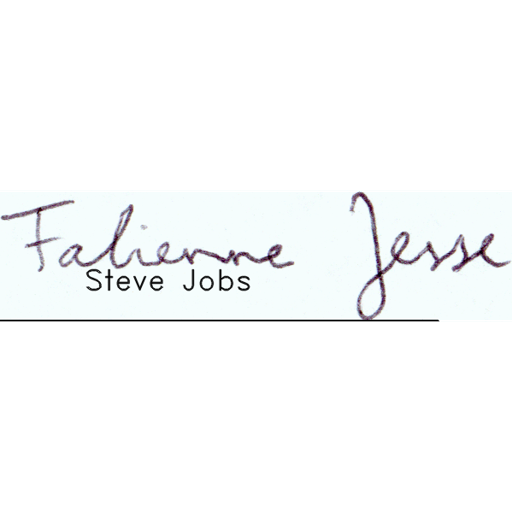 Fabienne Jesse
Steve Jobs